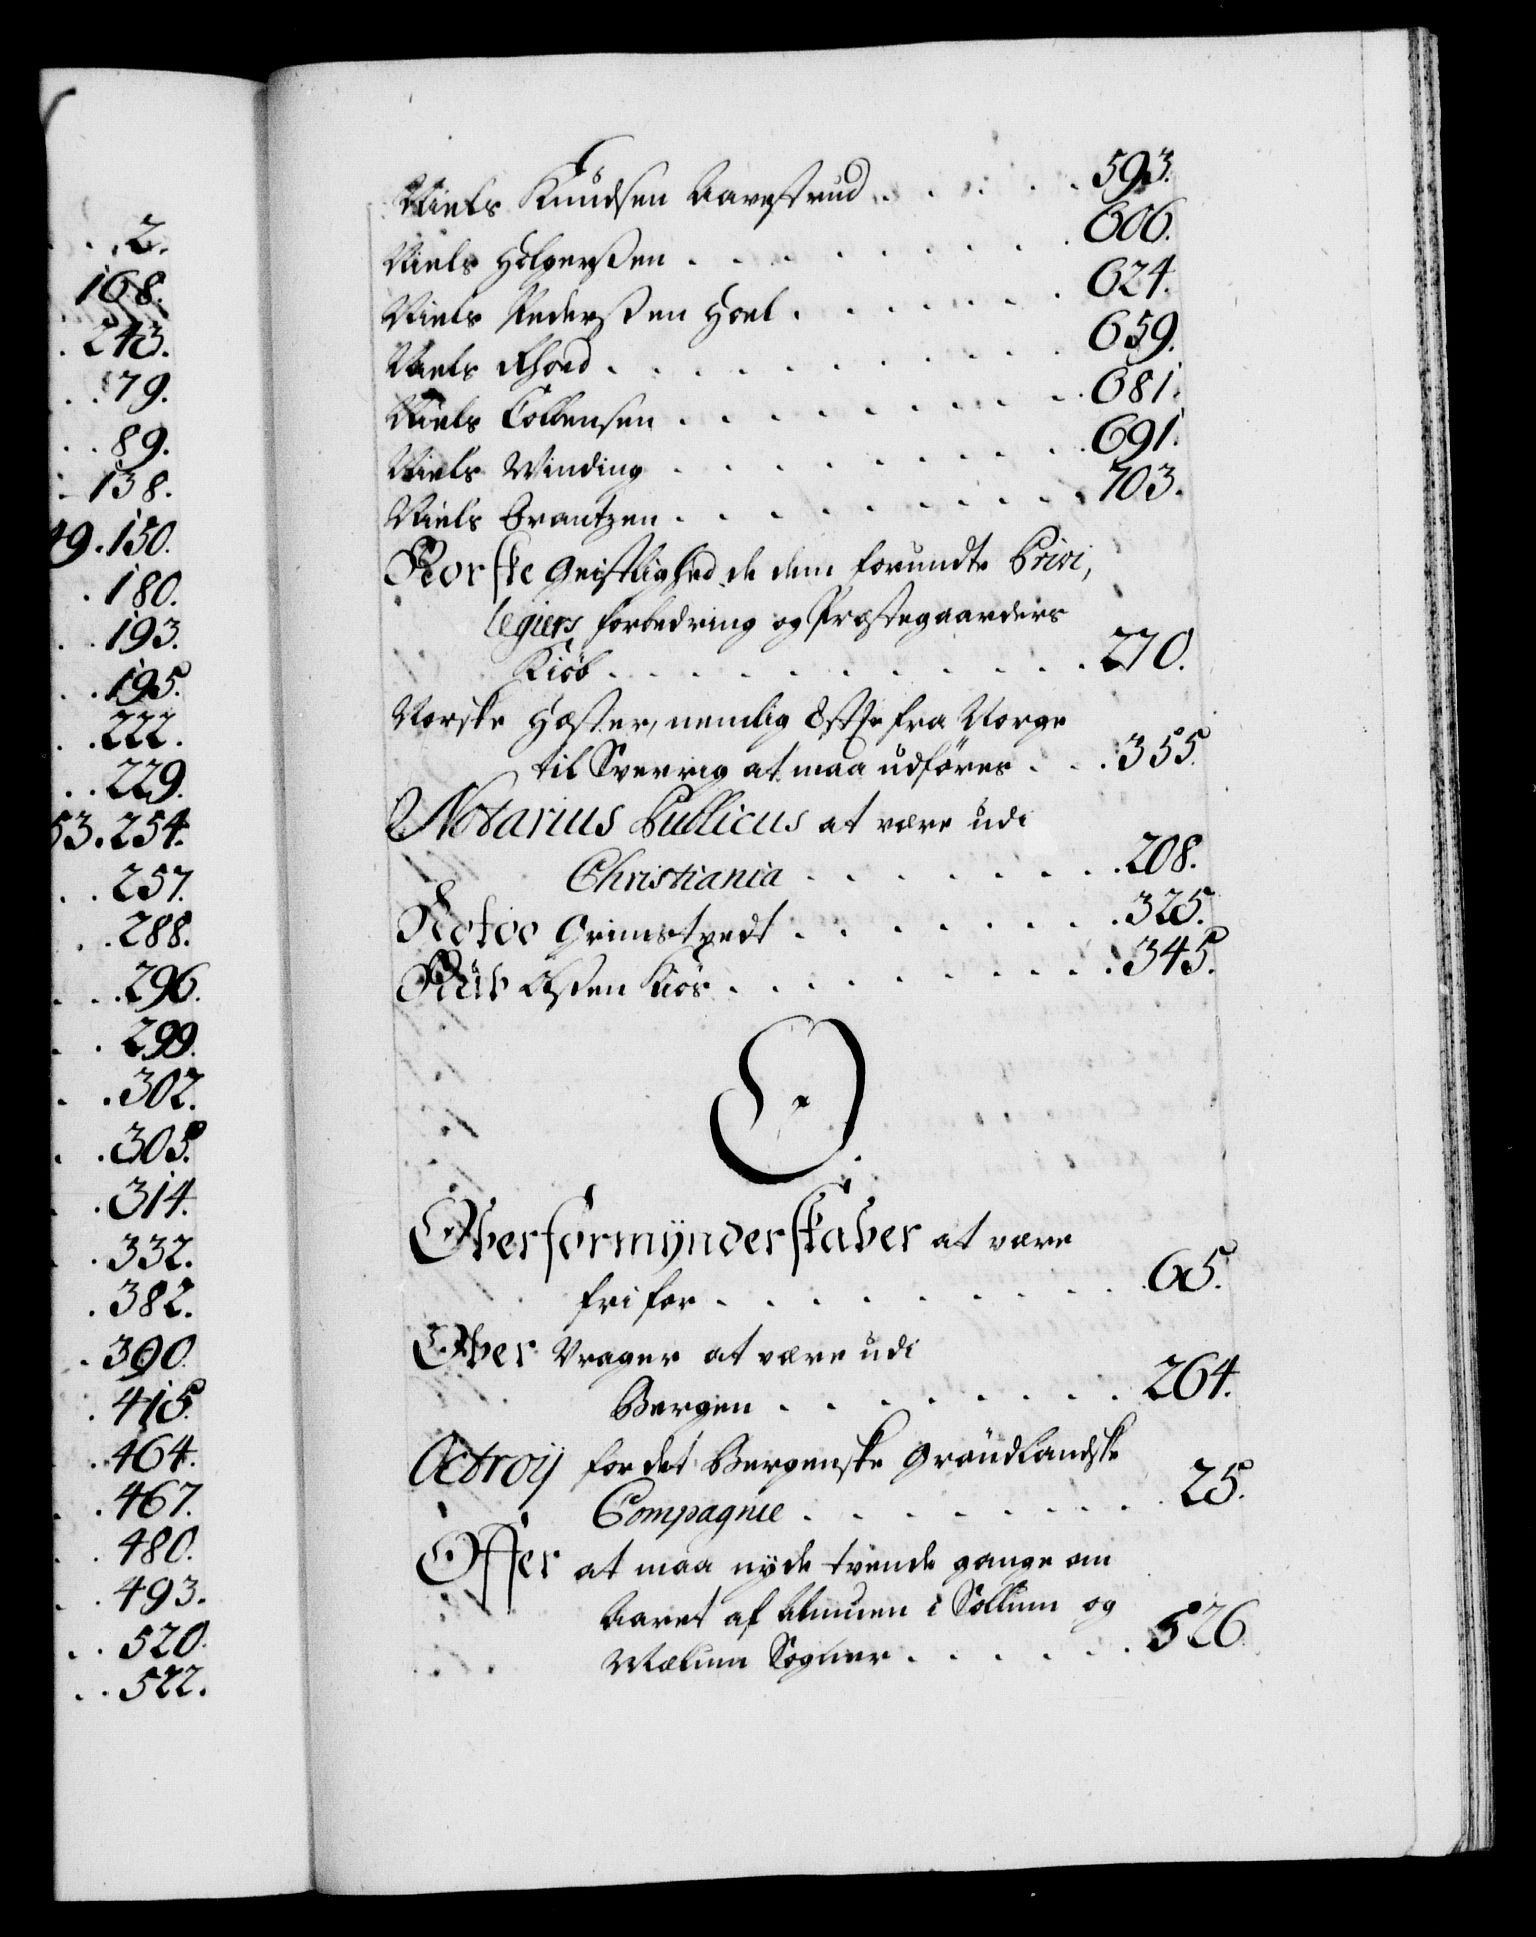 2.
168.
243.
79.
89.
138.
49. 150.
180.
193.
195.
222.
229.
53. 254.
257.
288.
296.
299.
302.
305.
314.
332.
382.
390.
415.
464.
467.
480.
493.
520.
522.
Niels Knudsen Aarestrud . . . . . 593.
Niels Holgersen . . . . . . . . 606.
Niels Pedersen Hoel . . . . . . 624.
Niels Rhoed . . . . . . . . . . 659.
Niels Collensen . . . . . . . . . 681.
Niels Winding . . . . . . . . . 691.
Niels Brantzen . . . . . . . . . 703.
Norske Geistlighed de dem forundte Privi,
legiers forbedring og Præstegaarders
Kiöb . . . . . . . . . . 270.
Norske Hæster, nemlig fra Norge
til Sverrig at maa udföres . . . 355.
Notarius Publicus at være udi
Christiania . . . . . . . 208.
Grimstvedt . . . . . . . 325.
. . . . . . . . 345.
O.
Oberformÿnderskaber at være
fri for . . . . . . . . . 65.
Ober Vrager at være udi
Bergen . . . . . . . 264.
Octroij for det Bergenske Gröndlandske
Compagnie . . . . . . . . 25.
Offer at maa nÿde tvende gange om
Aaret af Almuen i Sollum og
Mælum Sogner . . . . . . 526.